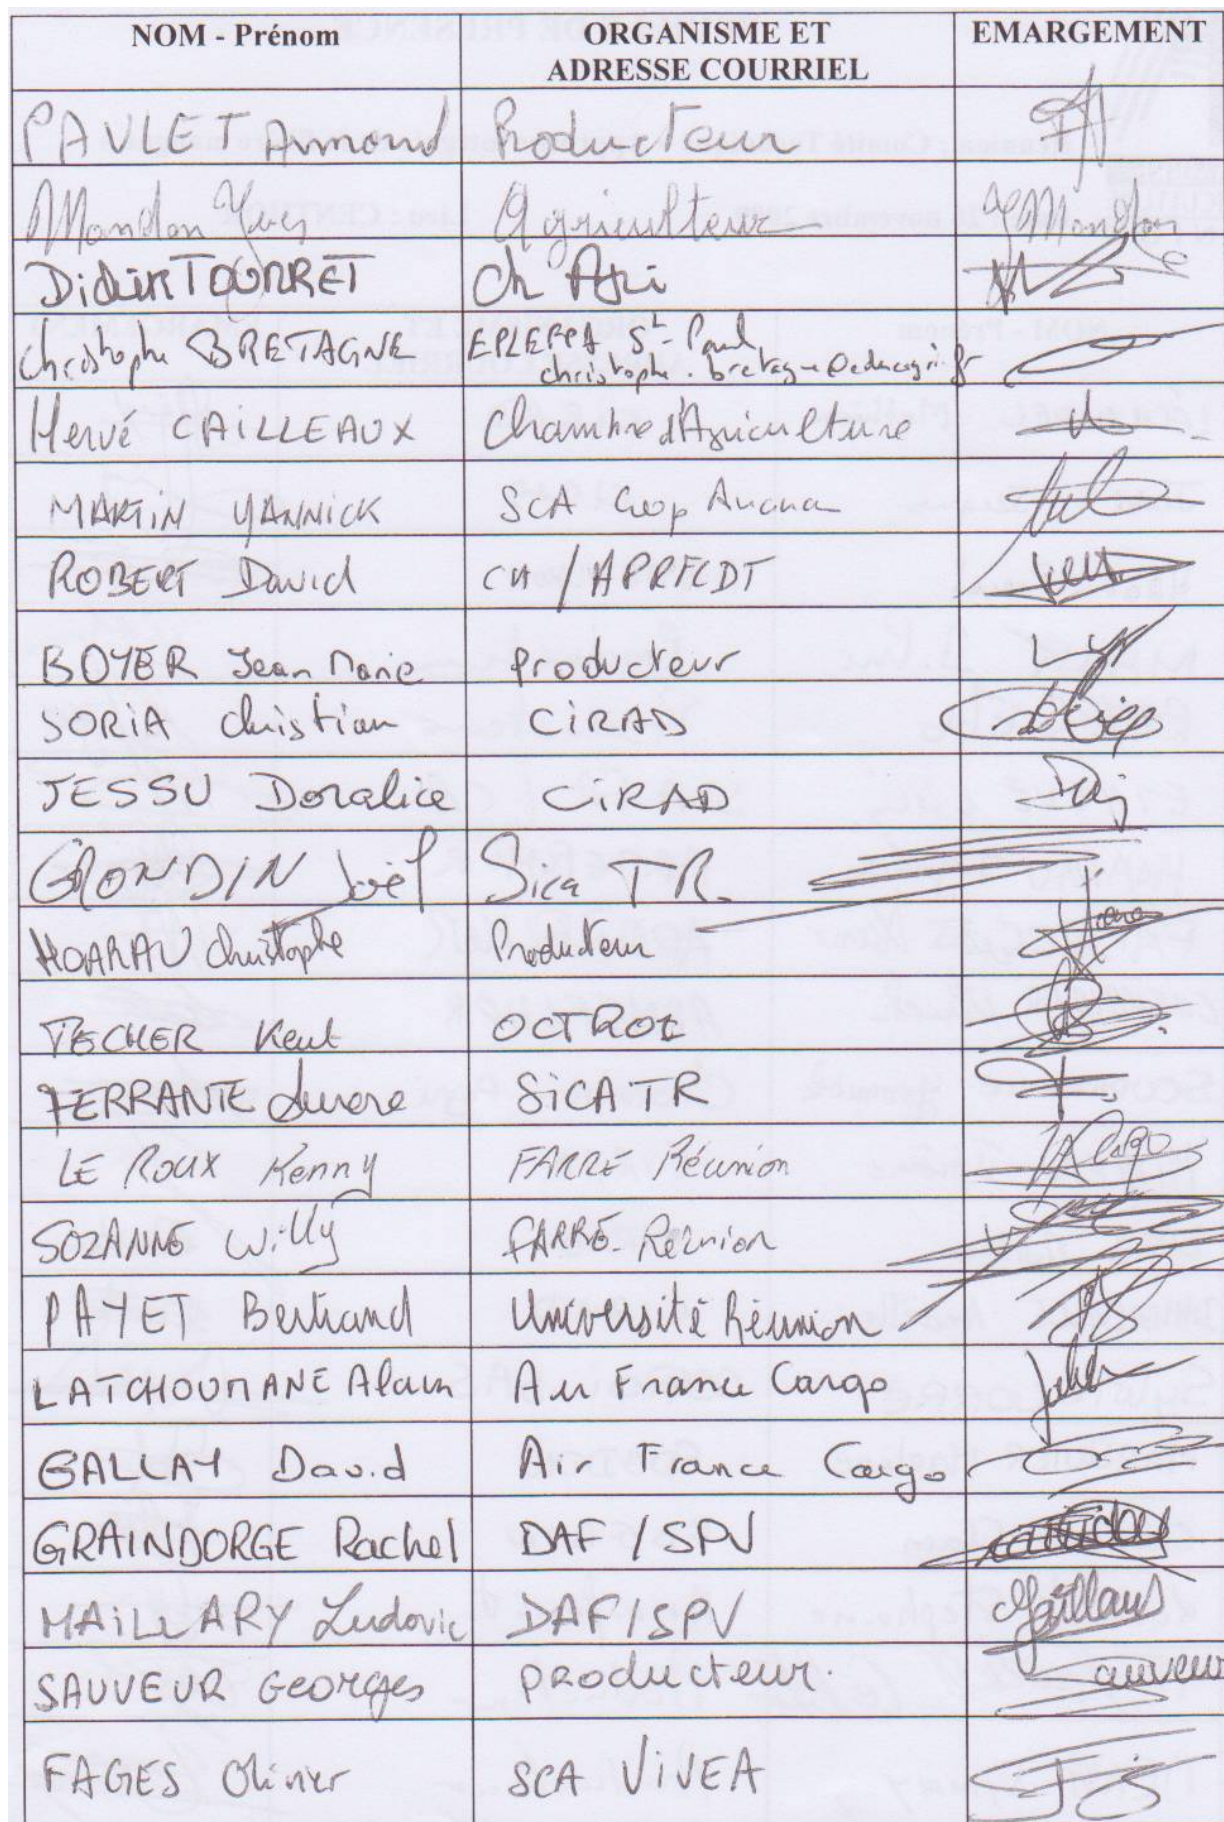 NOM - Prénom ORGANISME ET EMARGEMENT
ADRESSE COURRIEL
PAVLET Armand Producteur
Mondon Yves Agriculteur
Didier TOURRET Ch Agri
Christophe BRETAGNE EPLEFPA St-Paul
christophe.bretagne@educagri.fr
Hervé CAILLEAUX Chambre d'Agriculture
MARTIN YANNICK SCA Coop
ROBERT David CA/APRFLDT
BOYER Jean Marie producteur
SORIA Christian CIRAD
JESSU Doralice CIRAD
GRONDIN Joël Sica TR
HOARAU Christophe Producteur
TECHER Kent OCTROI
FERRANTE SICATR
LE ROUX Kenny FARRE Réunion
SOZANNE Willy FARRE-Réunion
PAYET Bertrand Université Réunion
LATCHOUMANE Alain Air France Cargo
GALLAY David Air France Cargo
GRAINDORGE Rachel DAF/SPV
MAILLARY Ludovic DAF/SPV Maillary
SAUVEUR Georges producteur. Sauveur
FAGES Olivier SCA VIVEA